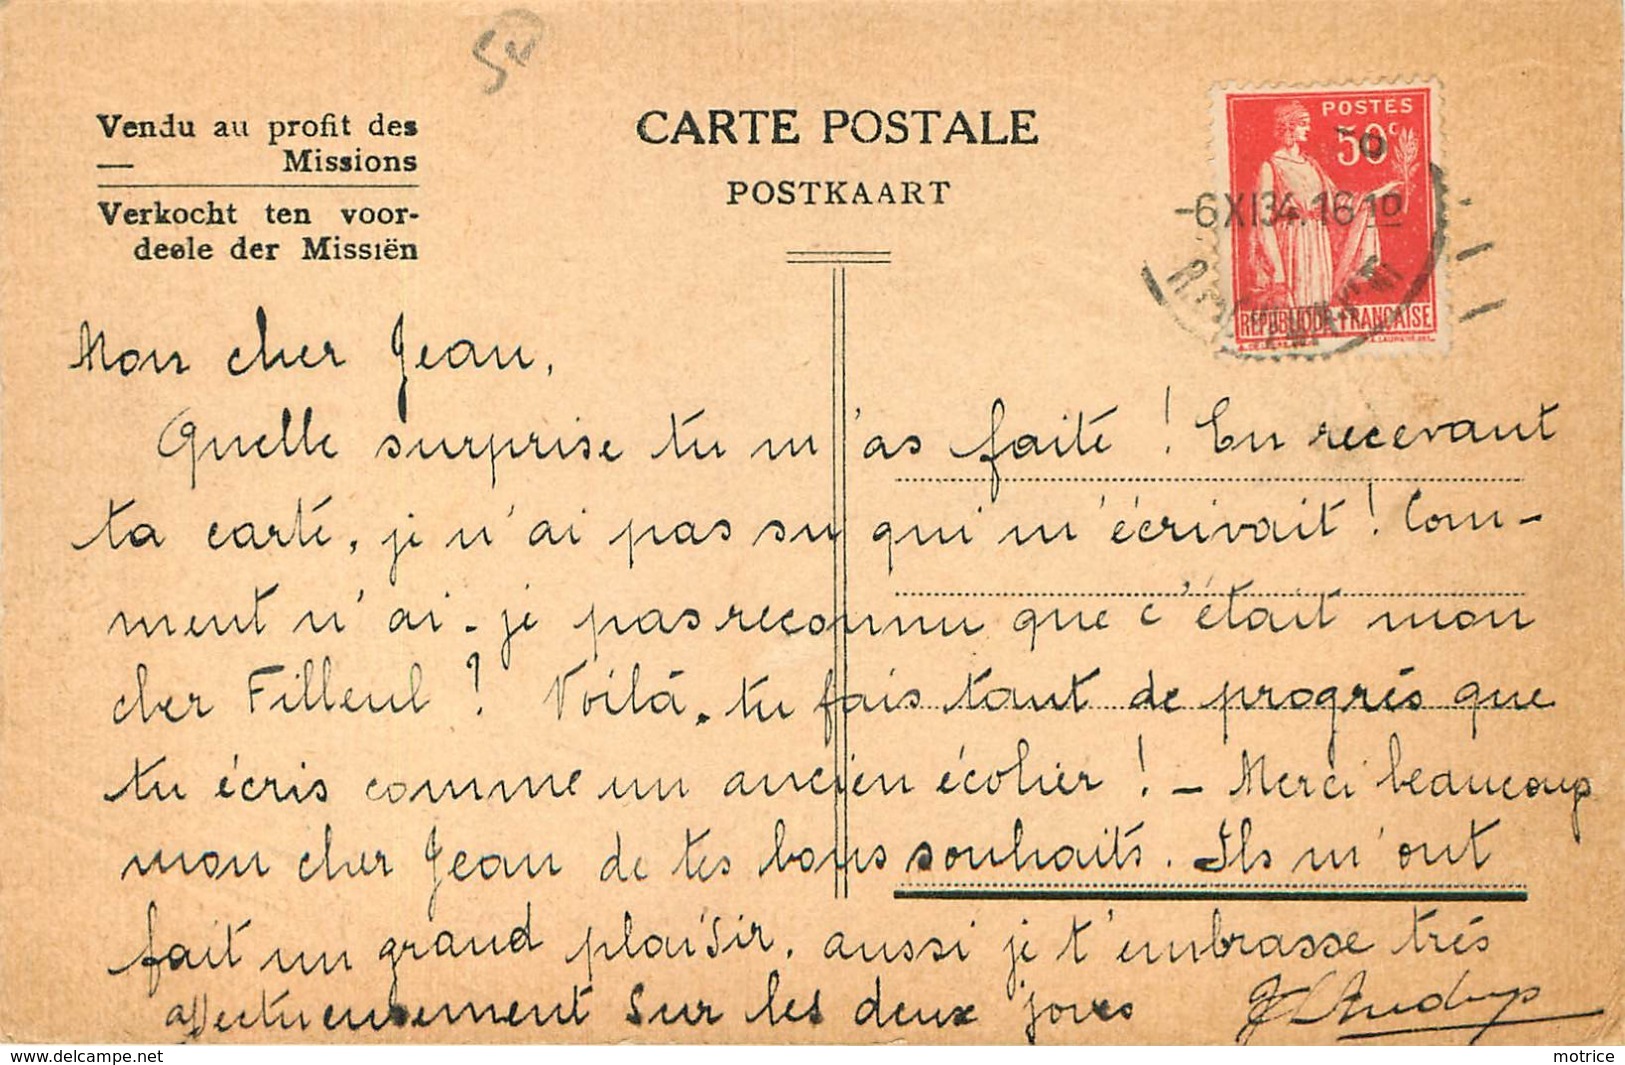 50
Vendu au profit des
— Missions
Verkocht ten voor-
deele der Missiën
CARTE POSTALE
POSTKAART
POSTES
50c
-6XI34.1610
REPUBLIQUE FRANÇAISE
Mon cher Jean,
Quelle surprise tu m'as faite ! En recevant
ta carte, je n'ai pas su qui m'écrivait ! Com-
ment n'ai-je pas reconnu que c'était mon
cher Filleul ? Voilà, tu fais tant de progrès que
tu écris comme un ancien écolier ! - Merci beaucoup
mon cher Jean de tes bons souhaits. Ils m'ont
fait un grand plaisir, aussi je t'embrasse très
affectueusement sur les deux joues
delcampe.net
motrice